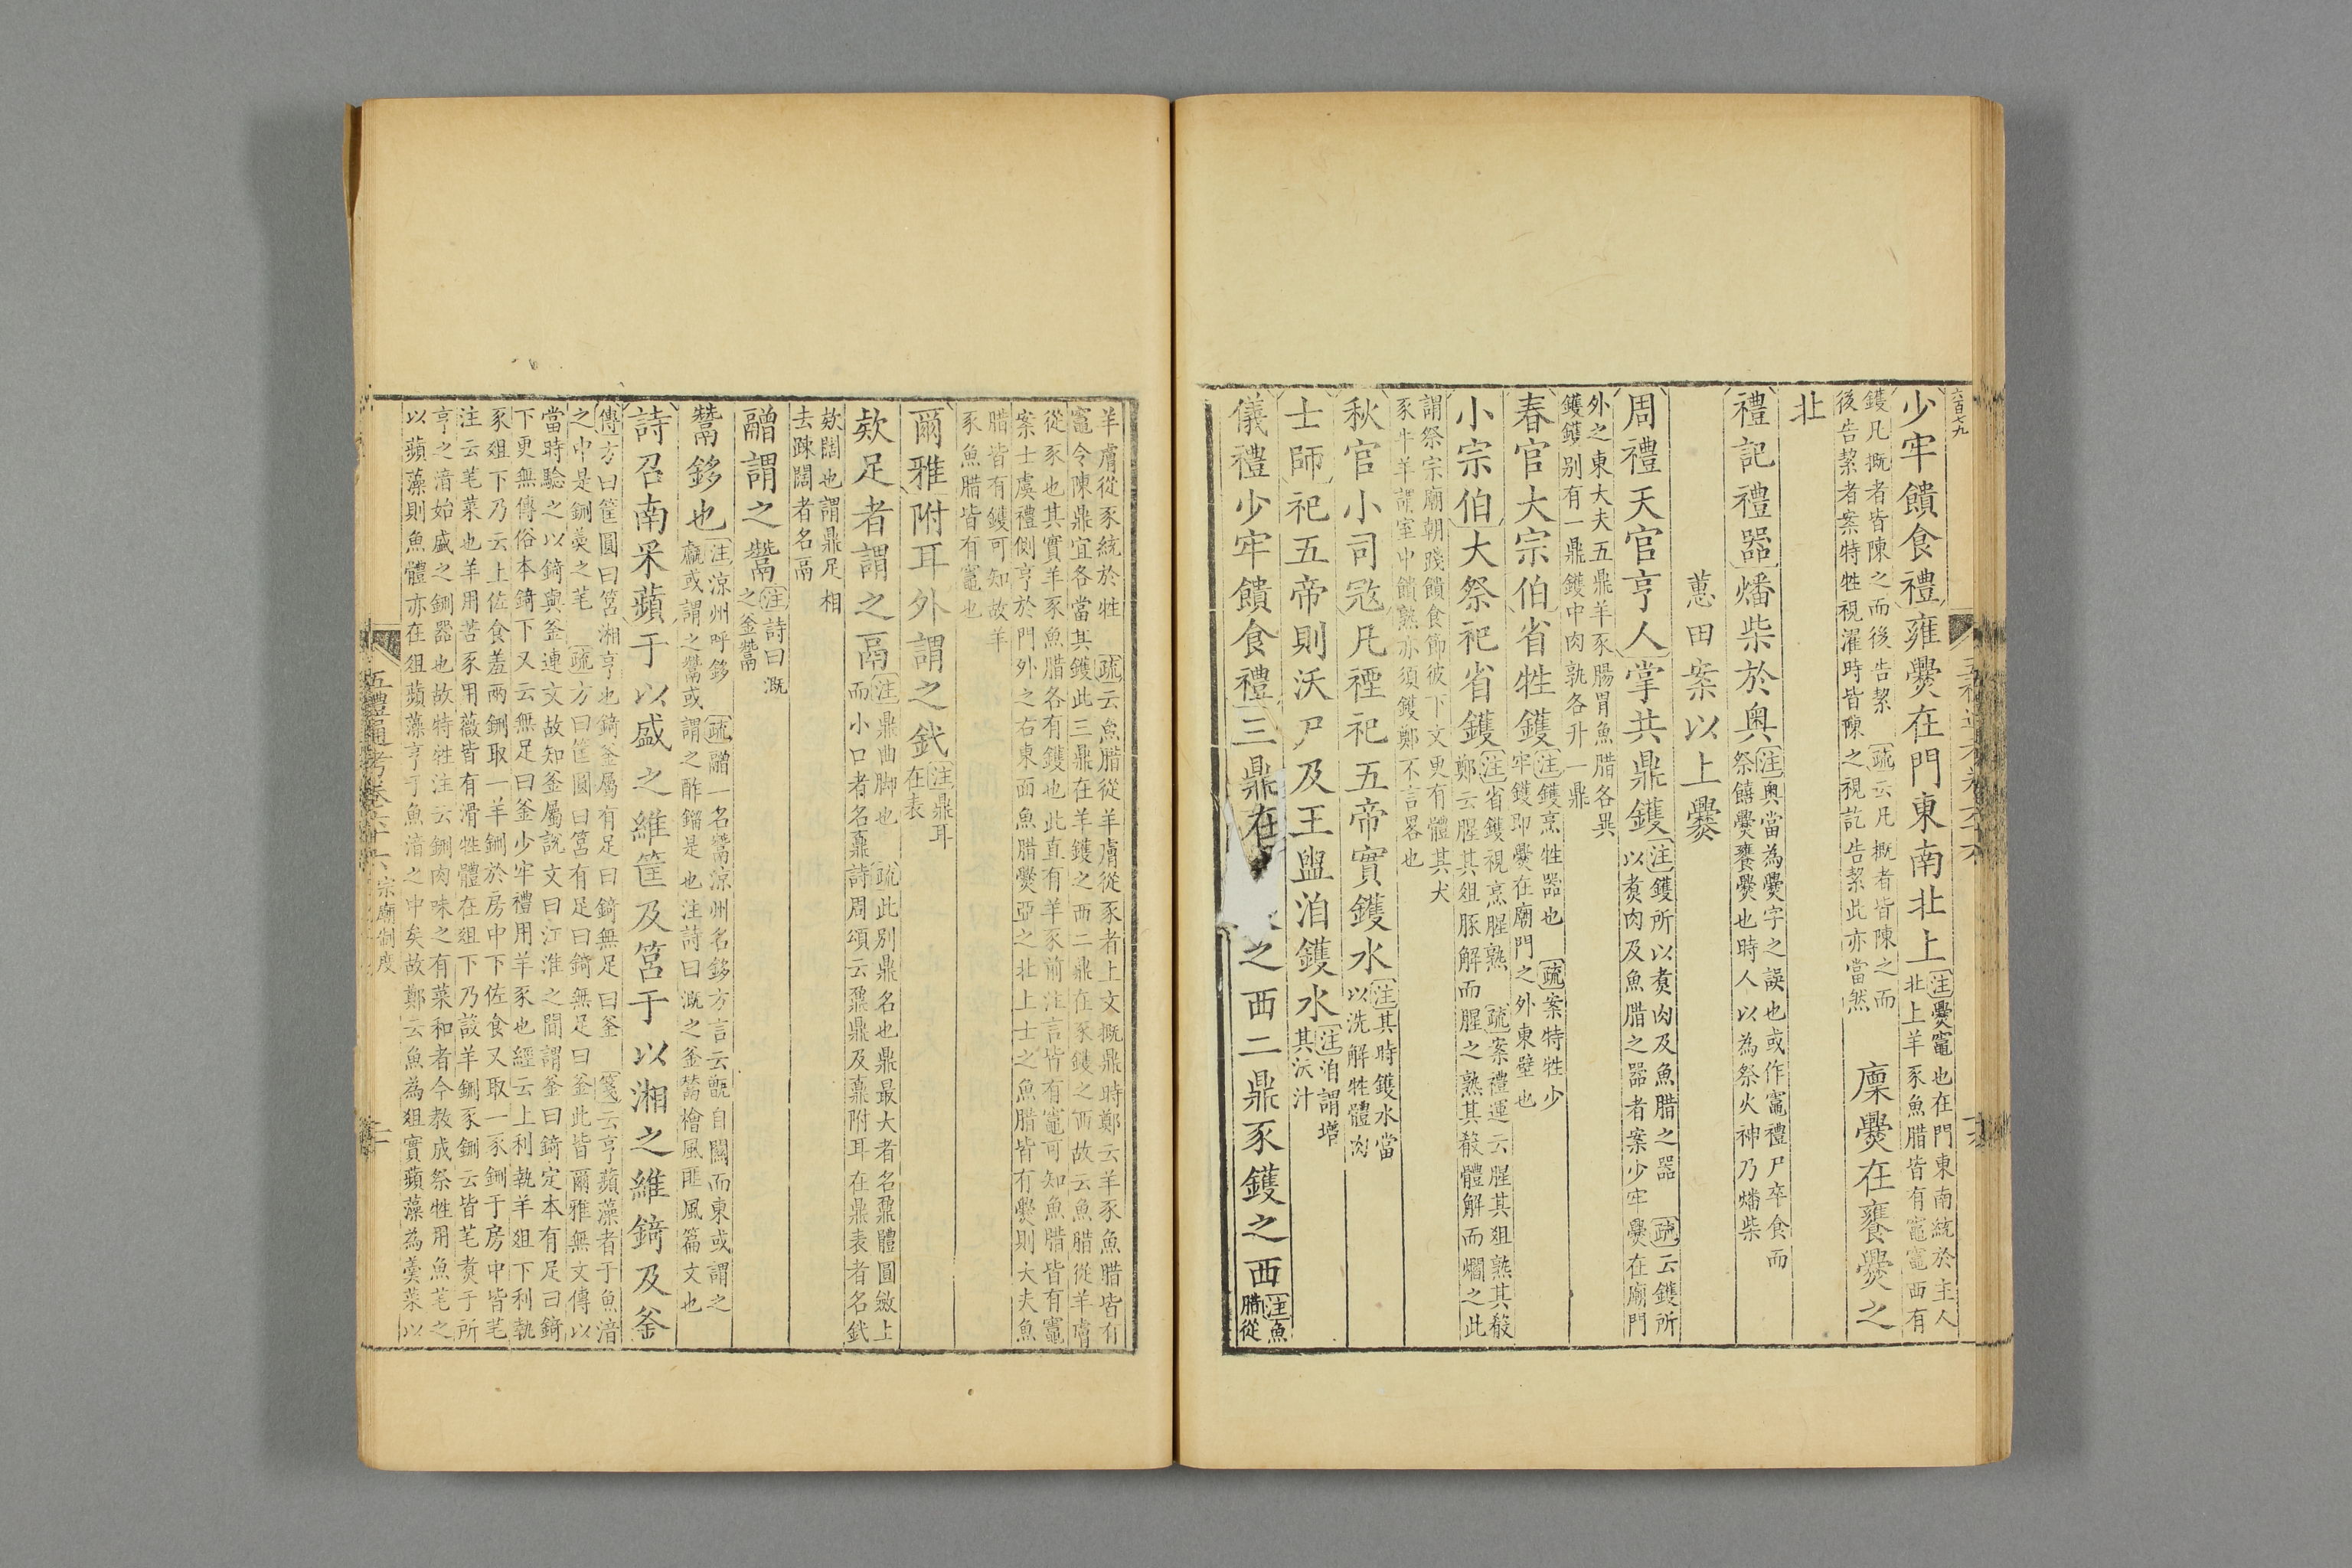 六百七九
少牢饋食禮雍爨在門東南北上注爨竈也在門東南統於主人北上羊豕魚腊皆有竈竈西有
鑊凡摡者皆陳之而後告絜疏云凡摡者皆陳之而後告絜者案特牲視濯時皆陳之視訖告絜此亦當然廩爨在饔爨之
北
禮記禮器燔柴於奥注奥當為爨字之誤也或作竈禮尸卒食而祭饎爨饔爨也時人以為祭火神乃燔柴
蕙田案以上爨
周禮天官亨人掌共鼎鑊注鑊所以煑肉及魚腊之器疏云鑊所以煑肉及魚腊之器者案少牢爨在廟門
外之東大夫五鼎羊豕腸胃魚腊各異鑊鑊别有一鼎鑊中肉孰各升一鼎
春官大宗伯省牲鑊注鑊烹牲器也疏案特牲少牢鑊即爨在廟門之外東壁也
小宗伯大祭祀省鑊注省鑊視烹腥熟疏案禮運云腥其俎熟其殽鄭云腥其俎豚解而腥之熟其殽體解而爓之此
謂祭宗廟朝踐饋食節彼下文更有體其犬豕牛羊謂室中饋熟亦須鑊鄭不言畧也
秋官小司寇凡禋祀五帝實鑊水注其時鑊水當以洗解牲體肉
士師祀五帝則沃尸及王盥洎鑊水注洎謂增其沃汁
儀禮少牢饋食禮三鼎在之西二鼎豕鑊之西注魚腊從
羊膚從豕統於牲疏云魚腊從羊膚從豕者上文摡鼎時鄭云羊豕魚腊皆有竈令陳鼎宜各當其鑊此三鼎在羊鑊之西二鼎在豕鑊之西故云魚腊從羊膚
從豕也其實羊豕魚腊各有鑊也此直有羊豕前注言皆有竈可知魚腊皆有竈案士虞禮側亨於門外之右東面魚腊爨亞之北上士之魚腊皆有爨則大夫魚
腊皆有鑊可知故羊豕魚腊皆有竈也
爾雅附耳外謂之釴注鼎耳在表
款足者謂之鬲注鼎曲脚也而小口者名鼒疏此别鼎名也鼎最大者名鼐體圓斂上詩周頌云鼐鼎及鼒附耳在鼎表者名釴
款闊也謂鼎足相去踈闊者名鬲
䰝謂之鬵注詩曰溉之釜鬵
鬵鉹也注涼州呼鉹疏䰝一名鬵涼州名鉹方言云甑自關而東或謂之甗或謂之鬵或謂之酢鎦是也注詩曰溉之釜鬵檜風匪風篇文也
詩召南采蘋于以盛之維筐及筥于以湘之維錡及釜
傳方曰筐圓曰筥湘亨也錡釜屬有足曰錡無足曰釜箋云亨蘋藻者于魚湆之中是鉶羹之芼疏方曰筐圓曰筥有足曰錡無足曰釜此皆爾雅無文傳以
當時驗之以錡與釜連文故知釜屬説文曰江淮之間謂釜曰錡定本有足曰錡下更無傳俗本錡下又云無足曰釜少牢禮用羊豕也經云上利執羊俎下利執
豕俎下乃云上佐食羞兩鉶取一羊鉶於房中下佐食又取一豕鉶于房中皆芼注云芼菜也羊用苦豕用薇皆有滑牲體在俎下乃設羊鉶豕鉶云皆芼煑于所
亨之湆始盛之鉶器也故特牲注云鉶肉味之有菜和者今教成祭牲用魚芼之以蘋藻則魚體亦在俎蘋藻亨于魚湆之中矣故鄭云魚為俎實蘋藻為羹菜以
五禮通考卷六十六宗廟制度